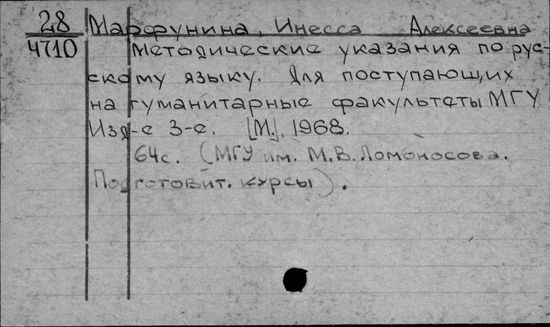 28 Марфунина, Инесса Алексеевна
4710 Методические указания по рус-
скому языку. Для поступающих
на гуманитарные факультеты МГУ
Изд-е 3-е. [М.], 1968.
64с. (МГУ им. М.В. Ломоносова.
Подготовит. курсы).